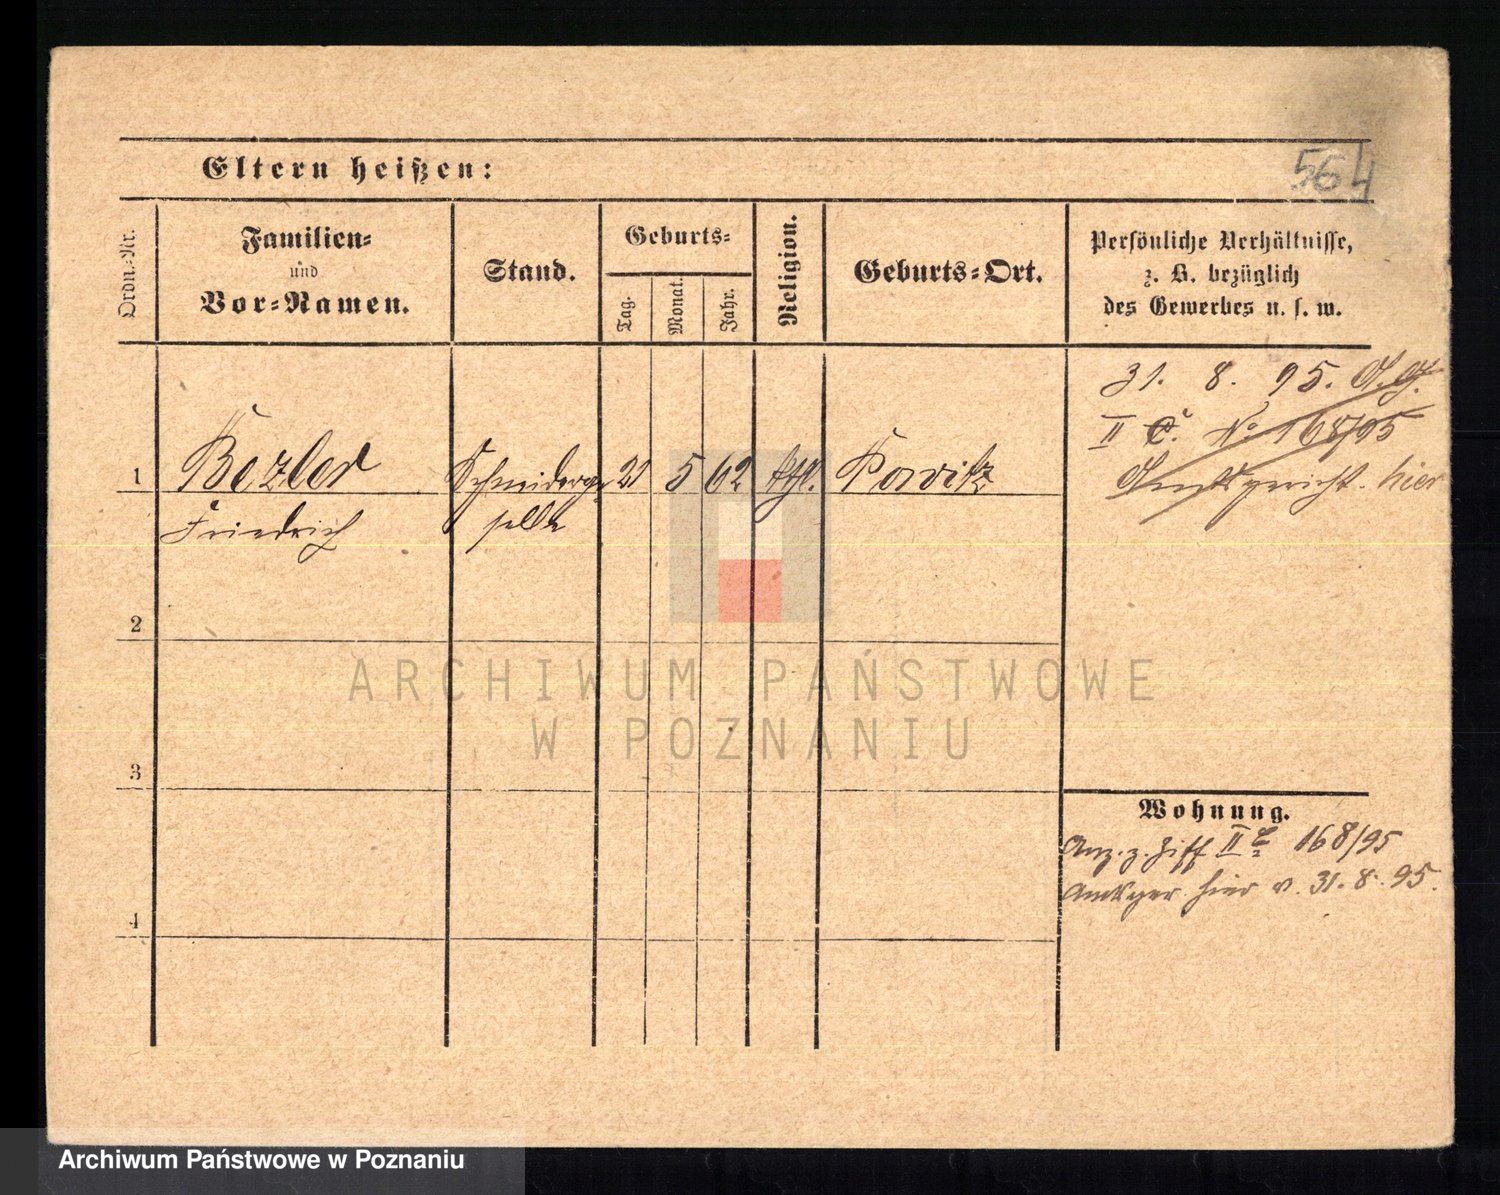 564
Eltern heißen:
Ordn.-Nr.
Familien-
und
Vor-Namen.
Stand.
Geburts-
Tag.
Monat.
Jahr.
Religion.
Geburts-Ort.
Persönliche Verhältnisse,
z. B. bezüglich
des Gewerbes u. s. w.
31. 8. 95.
II C. No 168/95
Amtsgericht. hier
1
Friedrich
Schneiderge-
selle
21
5
62
kth.
2
ARCHIWUM PAŃSTWOWE
W POZNANIU
3
Wohnung.
Anz. z. Ziff II 168/95
Amtsger. hier v. 31. 8. 95.
4
Archiwum Państwowe w Poznaniu